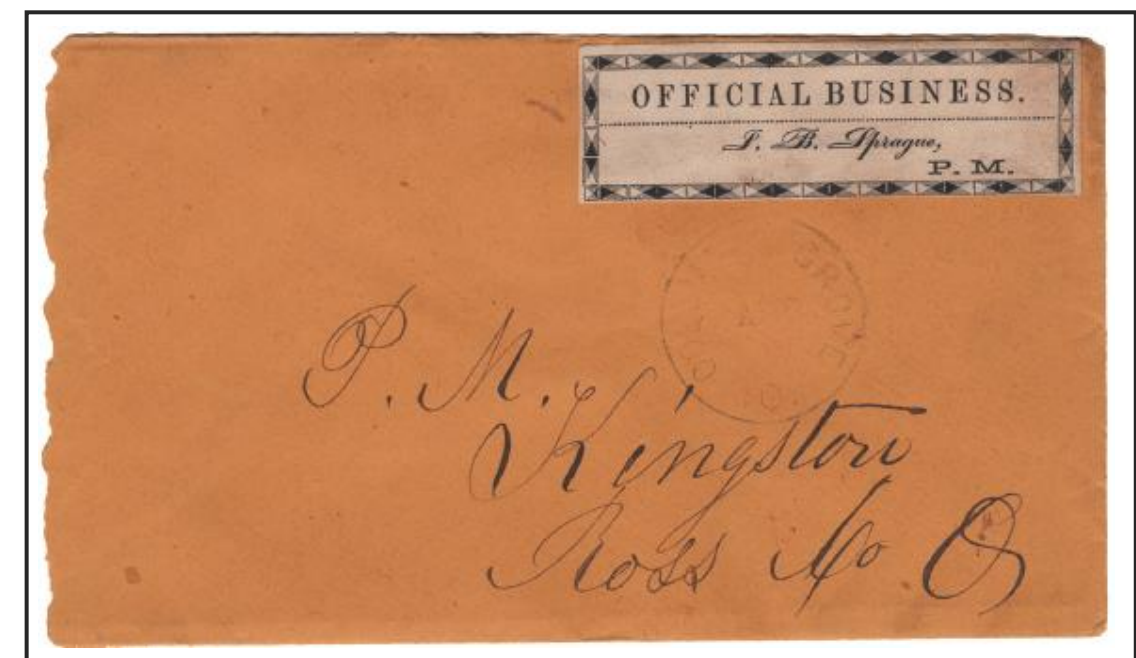 OFFICIAL BUSINESS.
J. B. Sprague,
P. M.
GROVE
P. M.
Kingston
Ross Co O